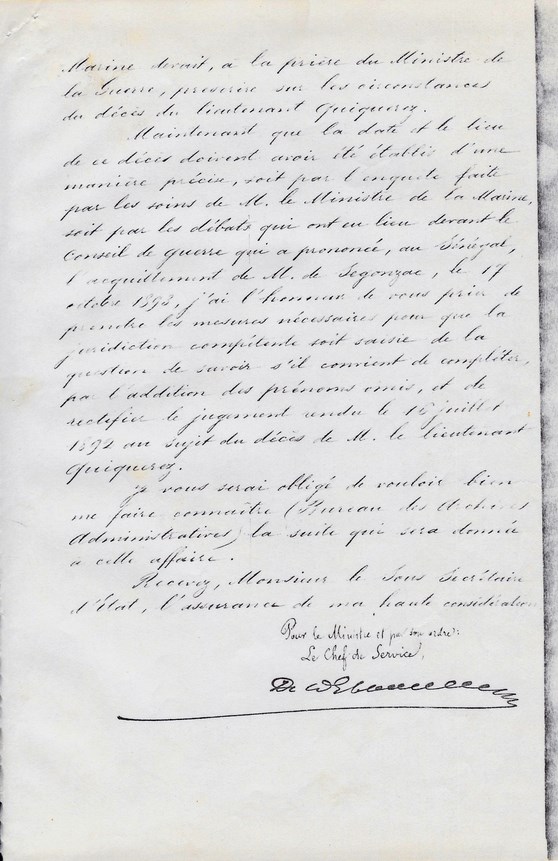 Marine devait, à la prière du Ministre de
la Guerre, prescrire sur les circonstances
du décès du lieutenant Quiquerez.
Maintenant que la date et le lieu
de ce décès doivent avoir été établis d'une
manière précise, soit par l'enquête faite
par les soins de M. le Ministre de la Marine,
soit par les débats qui ont eu lieu devant le
Conseil de guerre qui a prononcé, au Sénégal,
l'acquittement de M. de Segonzac, le 17
octobre 1893, j'ai l'honneur de vous prier de
prendre les mesures nécessaires pour que la
juridiction compétente soit saisie de la
question de savoir s'il convient de compléter,
par l'addition des prénoms omis, et de
rectifier le jugement rendu le juillet
1892 au sujet du décès de M. le lieutenant
Quiquerez.
Je vous serai obligé de vouloir bien
me faire connaître (Bureau des Archives
Administratives) la suite qui sera donnée
à cette affaire.
Recevez, Monsieur le Sous Secrétaire
d'État, l'assurance de ma haute considération
Pour le Ministre et par son ordre:
Le Chef de Service,